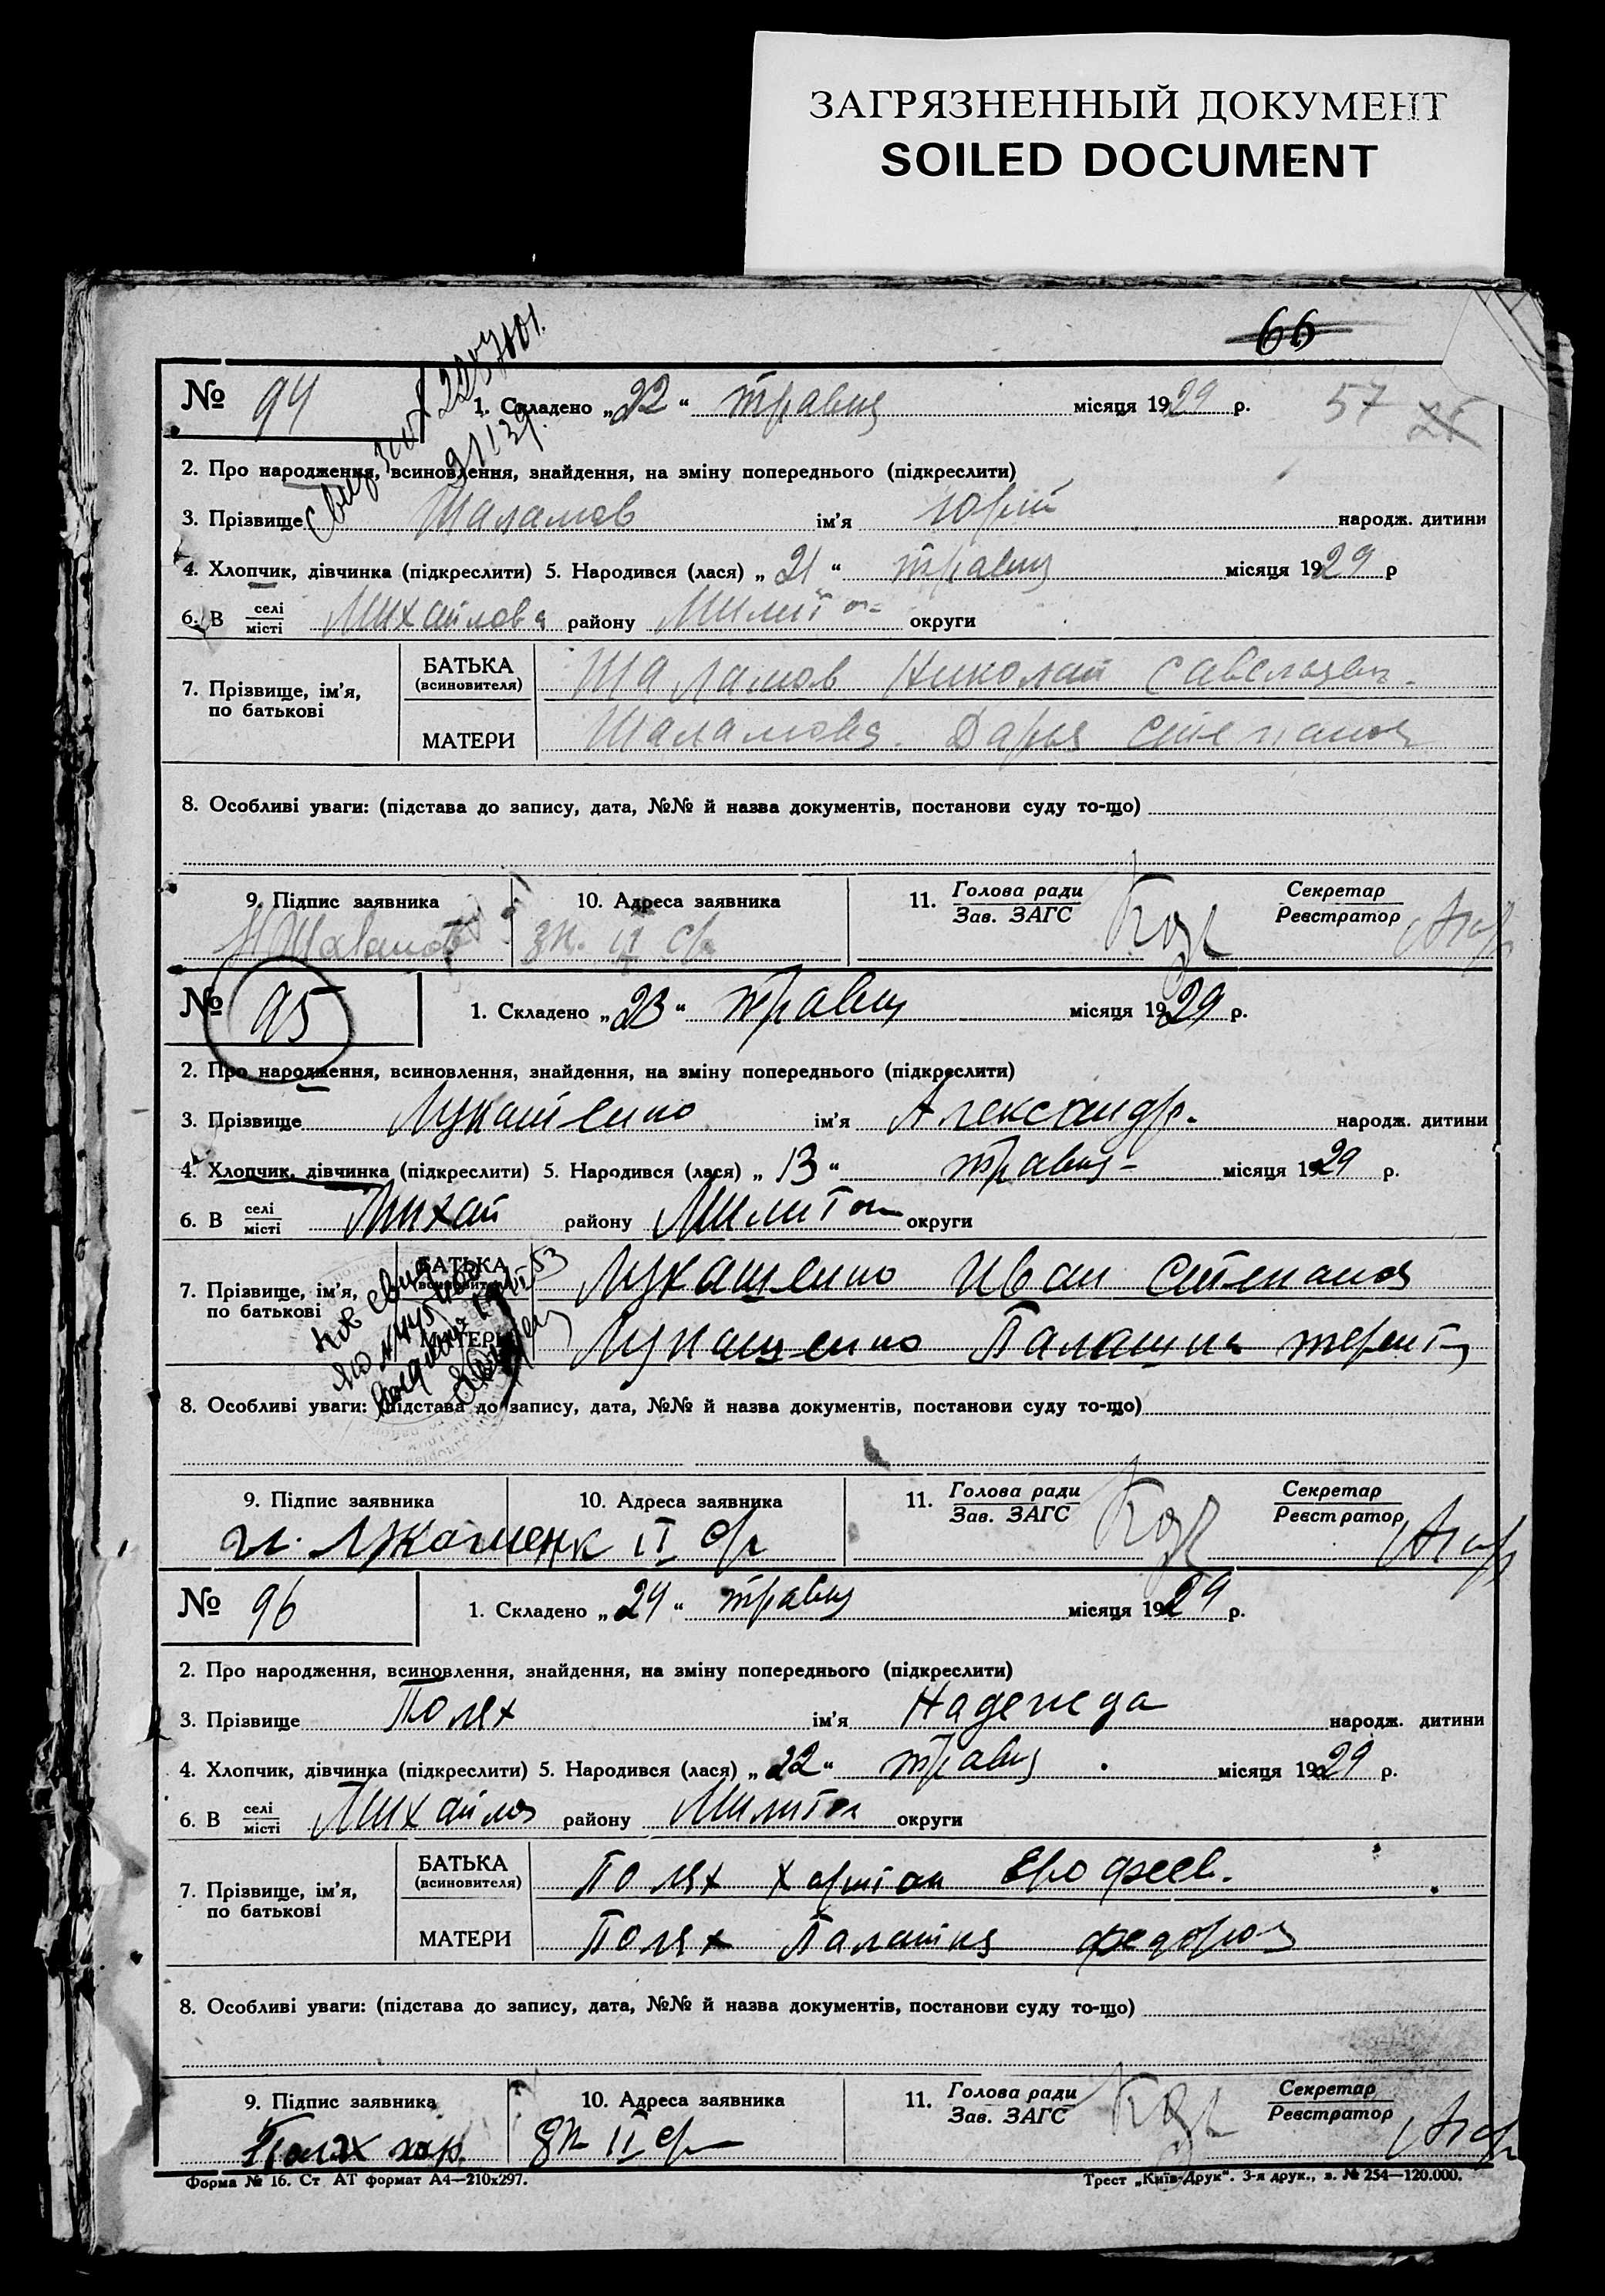 ЗАГРЯЗНЕННЫЙ ДОКУМЕНТ
SOILED DOCUMENT
66
№ 94 1. Складено „22“ травня місяця 1929 р. 57
2. Про народження, всиновлення, знайдення, на зміну попереднього (підкреслити)
3. Прізвище Шаламов ім’я Юрий народж. дитини
4. Хлопчик, дівчинка (підкреслити) 5. Народився (лася) „21“ травня місяця 1929 р
6. В селі місті Михайловка району Милит округи
7. Прізвище, ім’я, по батькові
БАТЬКА (всиновителя) Шаламов Николай
МАТЕРИ Шаламова Дарья Степанов
8. Особливі уваги: (підстава до запису, дата, №№ й назва документів, постанови суду то-що)
9. Підпис заявника 10. Адреса заявника 11. Голова ради Зав. ЗАГС Секретар Реєстратор
II ср
№ 95 1. Складено „23“ травня місяця 1929 р.
2. Про народження, всиновлення, знайдення, на зміну попереднього (підкреслити)
3. Прізвище Лукашенко ім’я Александр. народж. дитини
4. Хлопчик, дівчинка (підкреслити) 5. Народився (лася) „13“ травня місяця 1929 р.
6. В селі місті Михай району Милитоп округи
7. Прізвище, ім’я, по батькові
БАТЬКА Лукашенко Иван Степанов
МАТЕРИ Лукашенко Палашка
8. Особливі уваги: (підстава до запису, дата, №№ й назва документів, постанови суду то-що)
9. Підпис заявника 10. Адреса заявника 11. Голова ради Зав. ЗАГС Секретар Реєстратор
II ср
№ 96 1. Складено „24“ травня місяця 1929 р.
2. Про народження, всиновлення, знайдення, на зміну попереднього (підкреслити)
3. Прізвище Полях ім’я Надежда народж. дитини
4. Хлопчик, дівчинка (підкреслити) 5. Народився (лася) „22“ травня місяця 1929 р.
6. В селі місті Михайлов району Милитоп округи
7. Прізвище, ім’я, по батькові
БАТЬКА (всиновителя) Полях Ерофеев.
МАТЕРИ Полях Федоров
8. Особливі уваги: (підстава до запису, дата, №№ й назва документів, постанови суду то-що)
9. Підпис заявника 10. Адреса заявника 11. Голова ради Зав. ЗАГС Секретар Реєстратор
Полях хар. II ср
Форма № 16. Ст АТ формат А4—210х297. Трест „Київ-Друк“. 3-я друк., з. № 254—120.000.